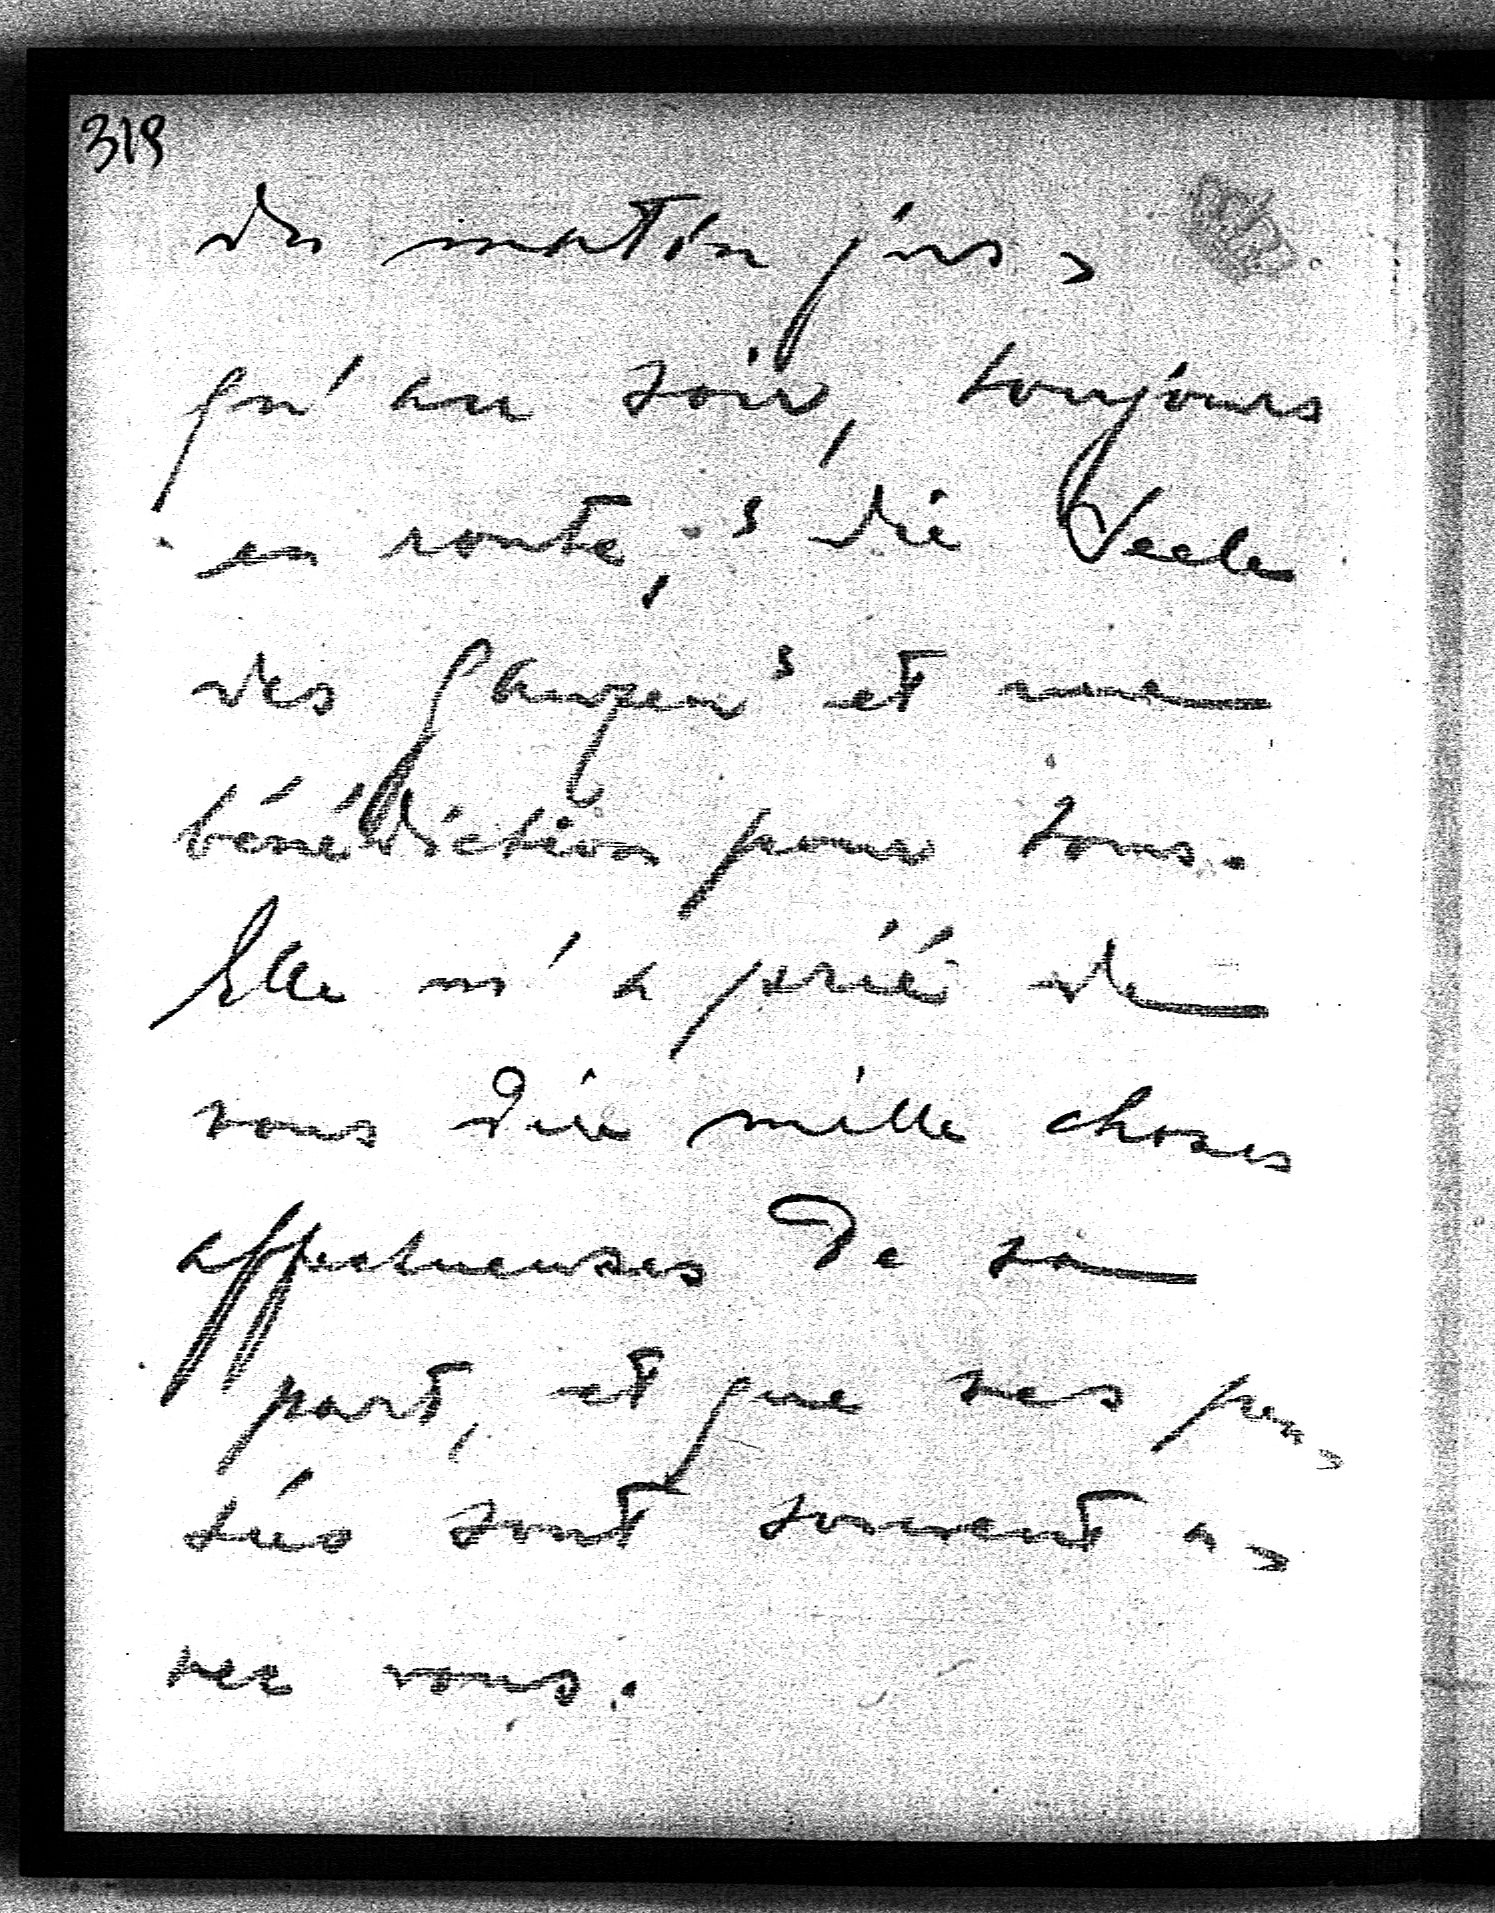 319
du matin jus-
qu'au soir, toujours
en route, "die Seele
des Ganzen" et une
bénédiction pour tous.
Elle m'a prié de
vous dire mille choses
affectueuses de sa
part, et que ses pen-
sées sont souvent a-
vec vous.